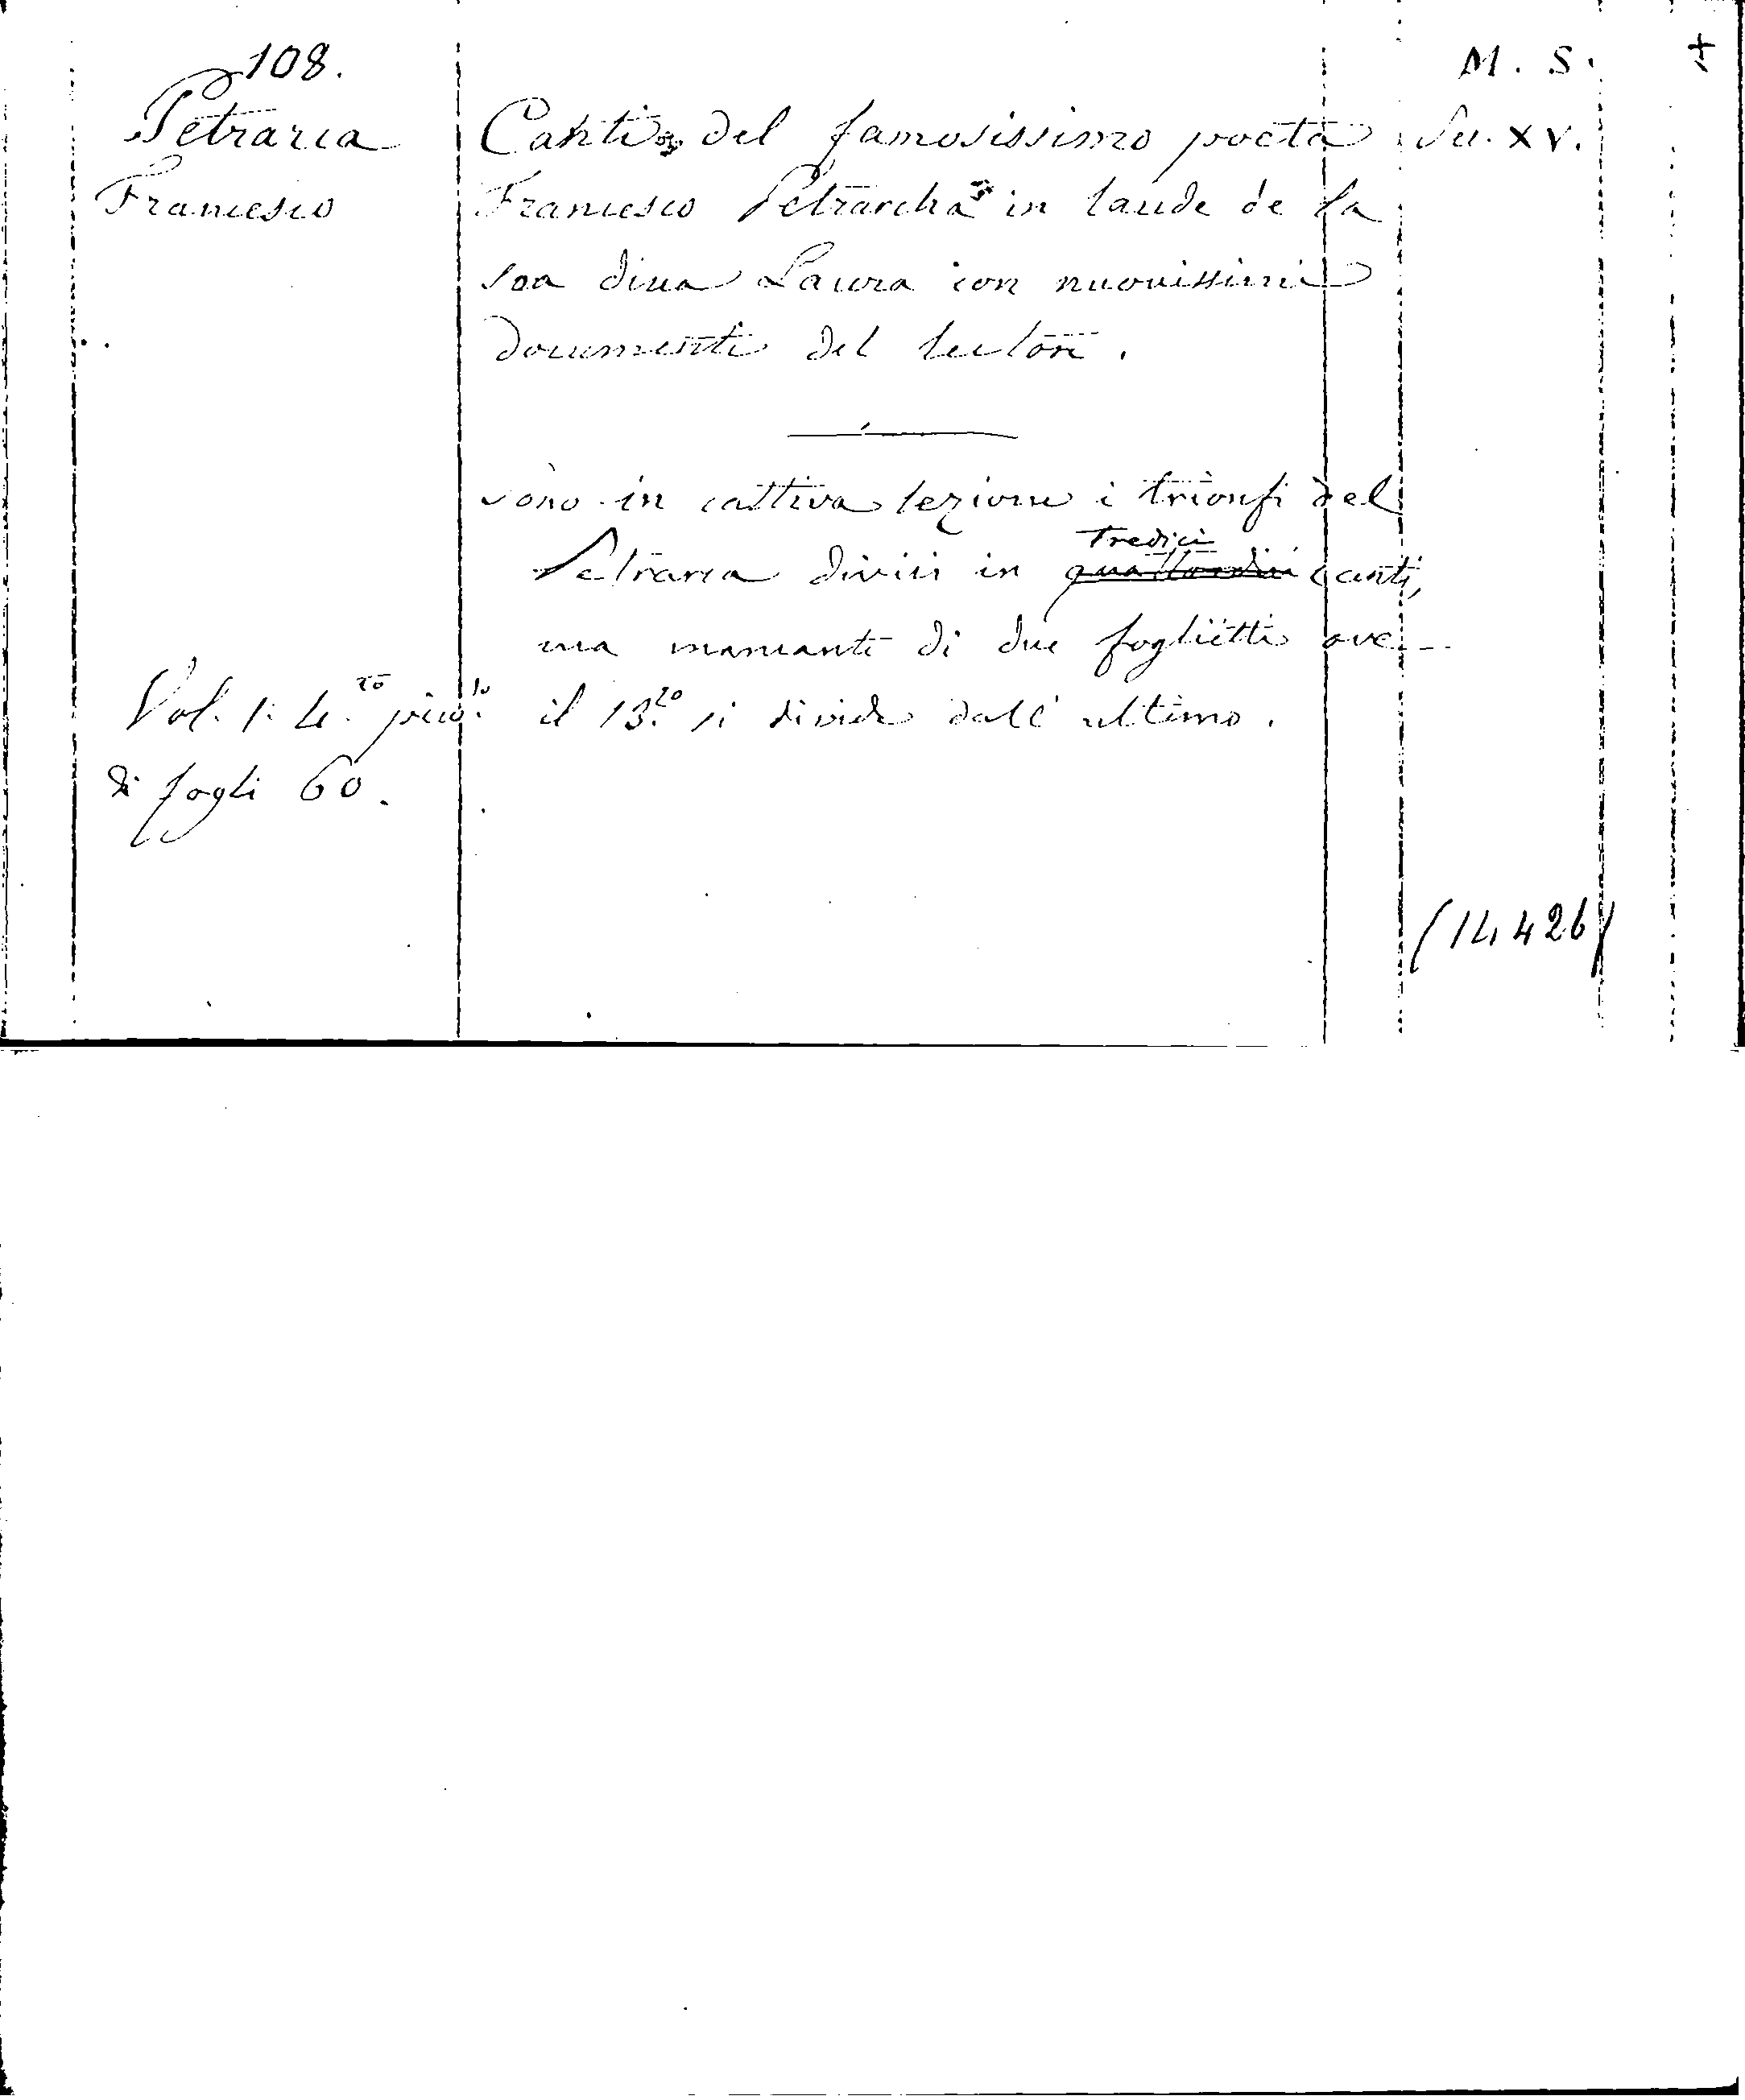 108.
M. S. +
Petrarca
Francesco
Canti del famosissimo poeta
Francesco Petrarcha in laude de la
soa diua Laura con nuouissimi
documenti del lectore.
Sec. XV.
sono in cattiva lezione i trionfi del
Petrarca divisi in quattordici tredici canti,
ma mancanti di due foglietti ove
il 13.to si divide dall' ultimo.
Vol. 1. 4.to picc.lo
di fogli 60.
(14426)